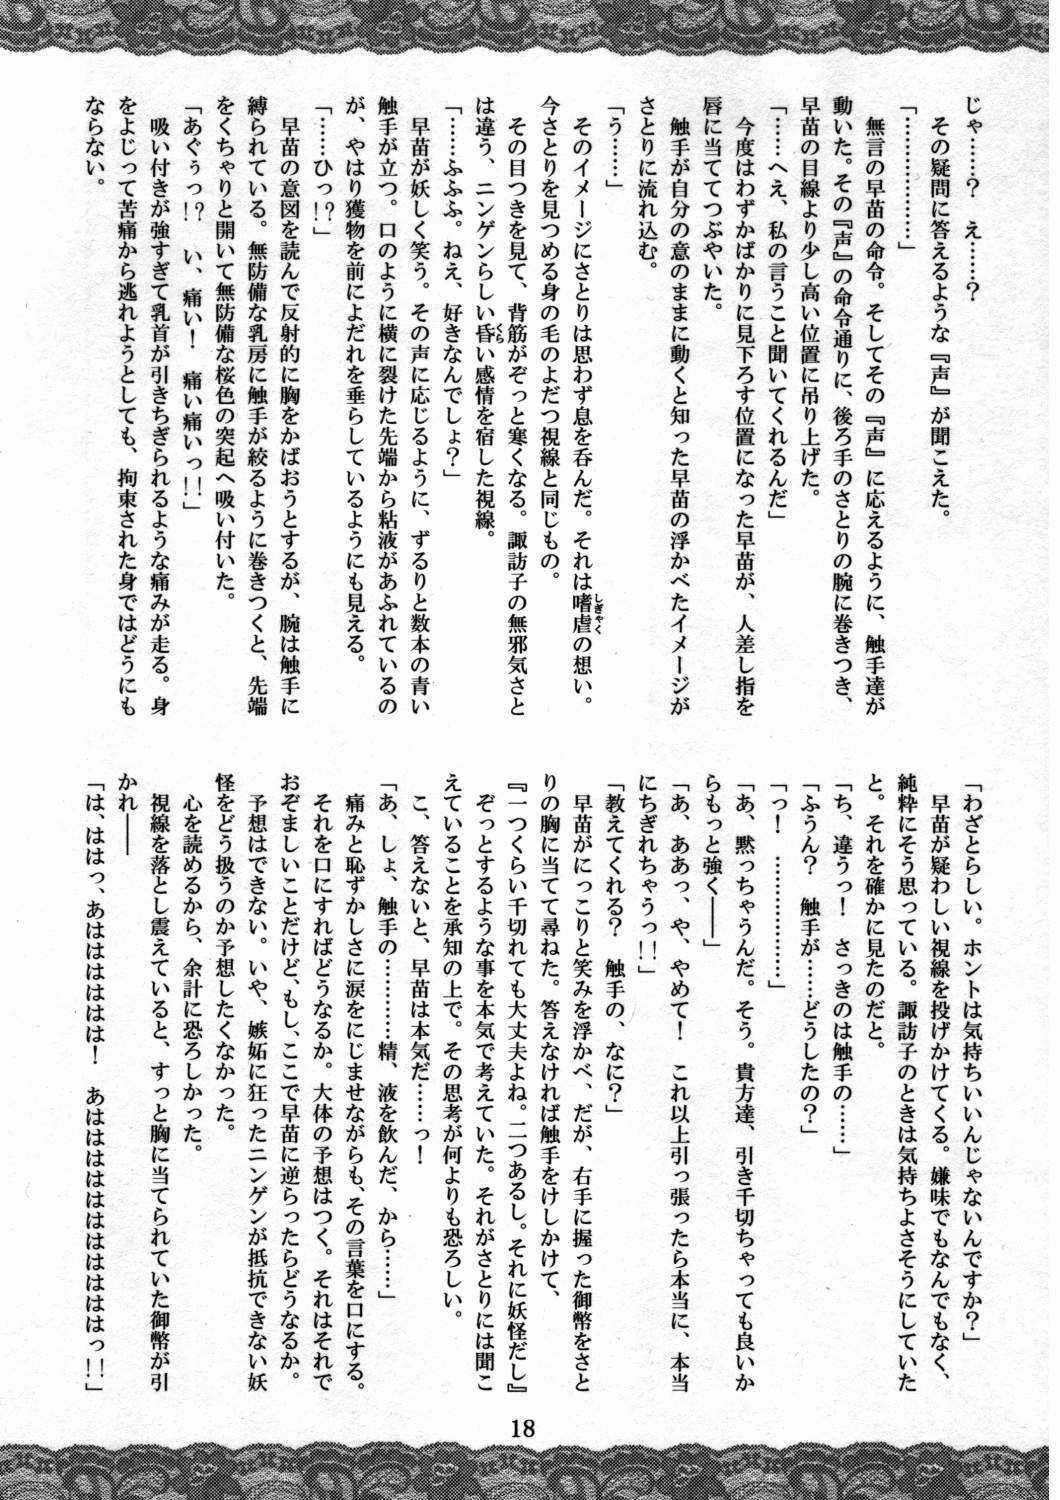 じゃ……？　え……？
その疑問に答えるような『声』が聞こえた。
「………………」
無言の早苗の命令。そしてその『声』に応えるように、触手達が
動いた。その『声』の命令通りに、後ろ手のさとりの腕に巻きつき、
早苗の目線より少し高い位置に吊り上げた。
「……へえ、私の言うこと聞いてくれるんだ」
今度はわずかばかりに見下ろす位置になった早苗が、人差し指を
唇に当ててつぶやいた。
触手が自分の意のままに動くと知った早苗の浮かべたイメージが
さとりに流れ込む。
「う……」
そのイメージにさとりは思わず息を呑んだ。それは嗜虐の想い。
今さとりを見つめる身の毛のよだつ視線と同じもの。
その目つきを見て、背筋がぞっと寒くなる。諏訪子の無邪気さと
は違う、ニンゲンらしい昏い感情を宿した視線。
「……ふふふ。ねえ、好きなんでしょ？」
早苗が妖しく笑う。その声に応じるように、ずるりと数本の青い
触手が立つ。口のように横に裂けた先端から粘液があふれているの
が、やはり獲物を前によだれを垂らしているようにも見える。
「……ひっ！？」
早苗の意図を読んで反射的に胸をかばおうとするが、腕は触手に
縛られている。無防備な乳房に触手が絞るように巻きつくと、先端
をくちゃりと開いて無防備な桜色の突起へ吸い付いた。
「あぐぅっ！？　い、痛い！　痛い痛いっ！！」
吸い付きが強すぎて乳首が引きちぎられるような痛みが走る。身
をよじって苦痛から逃れようとしても、拘束された身ではどうにも
ならない。
「わざとらしい。ホントは気持ちいいんじゃないんですか？」
早苗が疑わしい視線を投げかけてくる。嫌味でもなんでもなく、
純粋にそう思っている。諏訪子のときは気持ちよさそうにしていた
と。それを確かに見たのだと。
「ち、違うっ！　さっきのは触手の……」
「ふうん？　触手が……どうしたの？」
「っ！　………………」
「あ、黙っちゃうんだ。そう。貴方達、引き千切ちゃっても良いか
らもっと強く――」
「あ、ああっ、や、やめて！　これ以上引っ張ったら本当に、本当
にちぎれちゃうっ！！」
「教えてくれる？　触手の、なに？」
早苗がにっこりと笑みを浮かべ、だが、右手に握った御幣をさと
りの胸に当てて尋ねた。答えなければ触手をけしかけて、
『一つくらい千切れても大丈夫よね。二つあるし。それに妖怪だし』
ぞっとするような事を本気で考えていた。それがさとりには聞こ
えていることを承知の上で。その思考が何よりも恐ろしい。
こ、答えないと、早苗は本気だ……っ！
「あ、しょ、触手の…………精、液を飲んだ、から……」
痛みと恥ずかしさに涙をにじませながらも、その言葉を口にする。
それを口にすればどうなるか。大体の予想はつく。それはそれで
おぞましいことだけど、もし、ここで早苗に逆らったらどうなるか。
予想はできない。いや、嫉妬に狂ったニンゲンが抵抗できない妖
怪をどう扱うのか予想したくなかった。
心を読めるから、余計に恐ろしかった。
視線を落とし震えていると、すっと胸に当てられていた御幣が引
かれ――
「は、ははっ、あはははははは！　あはははははははははははっ！！」
18